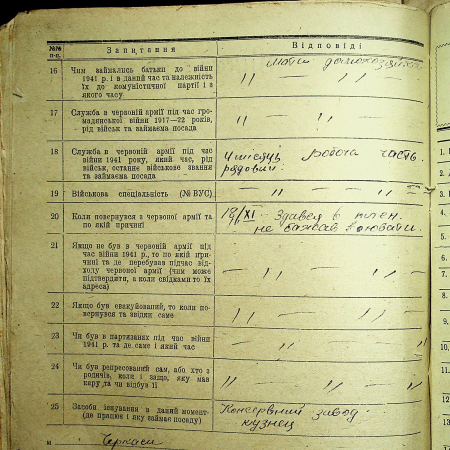 №№ п-п.
Запитання
Відповіді
16
Чим займались батьки до війни
1941 р. і в даний час та належність
їх до комуністичної партії і з
якого часу.
мати домохозяйка
" — " "
17
Служба в червоній армії під час гро-
мадянської війни 1917—22 років,
рід військ та займаєма посада
" — "
18
Служба в червоній армії під час
війни 1941 року, який час, рід
військ, останнє військове звання
та займаєма посада
робоча часть.
рядовий.
19
Військова спеціальність (№ ВУС)
— " — "
20
Коли повернувся з червоної армії та
по якій причині
18/XI. Здався в плен.
не бажав воювати.
21
Якщо не був в червоній армії під
час війни 1941 р., то по якій при-
чині та де перебував підчас від-
ходу червоної армії (чим може
підтвердити, а коли свідками то їх
адреса)
— " — " —
22
Якщо був евакуйований, то коли по-
вернувся та звідки саме
" — " — "
23
Чи був в партизанах під час війни
1941 р. та де саме і який час
— " — "
24
Чи був репресований сам, або хто з
родичів, коли і защо, яку мав
кару та чи відбув її
" " — "
25
Засоби існування в даний момент-
(де працює і яку займає посаду)
Консервний завод.
кузнец
м
Черкаси
1.
2.
3.
4.
5.
6.
7.
8.
9.
10.
11.
12.
13